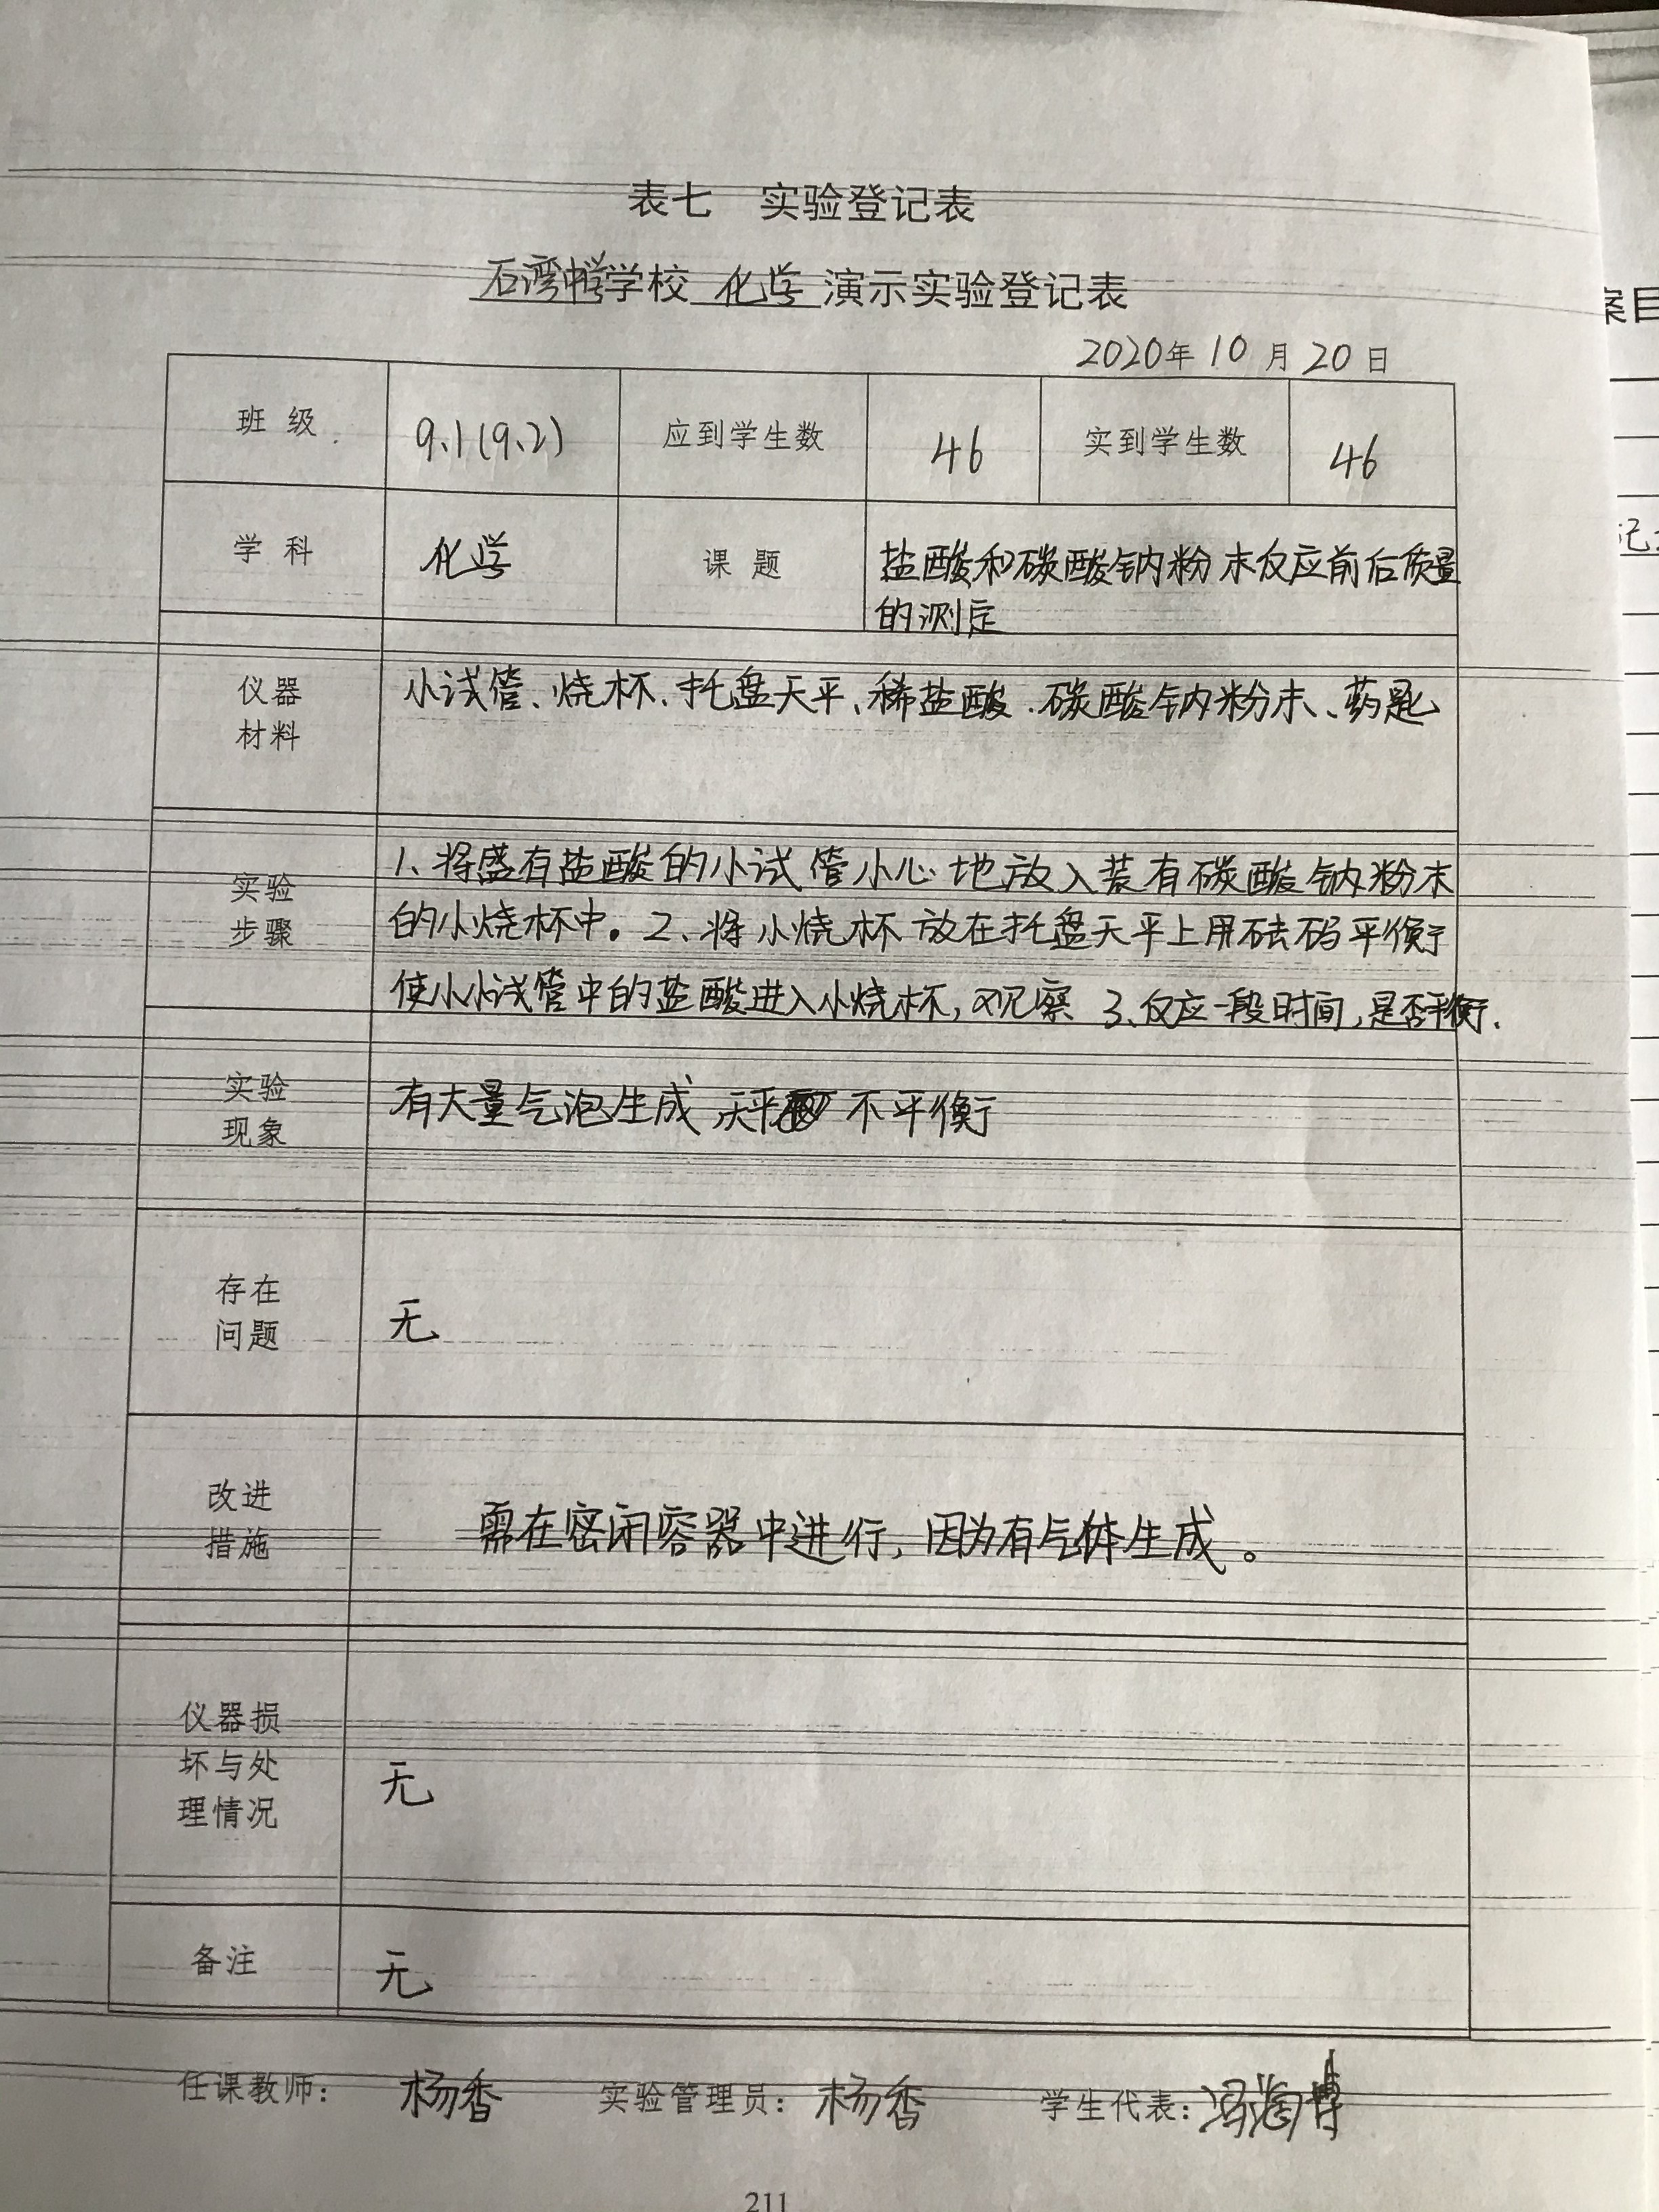 表七 实验登记表
石湾中学学校 化学 演示实验登记表
2020年 10 月 20 日
班 级 9.1(9.2) 应到学生数 46 实到学生数 46
学 科 化学 课 题 盐酸和碳酸钠粉末反应前后质量
的测定
仪器
材料
小试管、烧杯、托盘天平、稀盐酸、碳酸钠粉末、药匙
实验
步骤
1、将盛有盐酸的小试管小心地放入装有碳酸钠粉末
的小烧杯中。2、将小烧杯放在托盘天平上用砝码平衡
使小小试管中的盐酸进入小烧杯,观察 3、反应一段时间,是否平衡.
实验
现象
有大量气泡生成 天平 不平衡
存在
问题
无
改进
措施
需在密闭容器中进行,因为有气体生成。
仪器损
坏与处
理情况
无
备注 无
任课教师: 杨香 实验管理员: 杨香 学生代表: 冯
211
案目
记